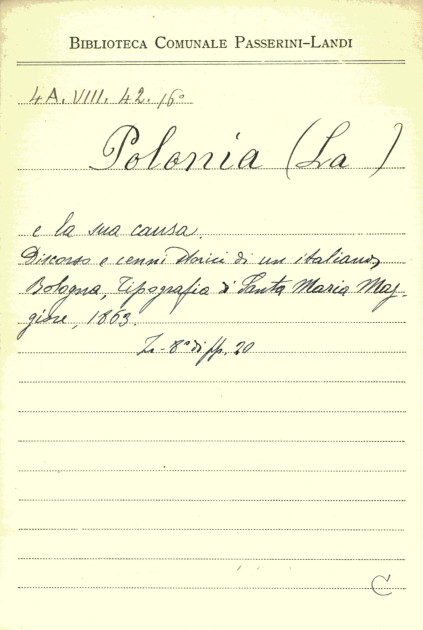 BIBLIOTECA COMUNALE PASSERINI-LANDI
4A. VIII. 42. 16°
Polonia (La)
e la sua causa.
Discorso e cenni storici di un italiano,
Bologna, Tipografia di Santa Maria Mag-
giore, 1863.
In-8° di pp. 20
C